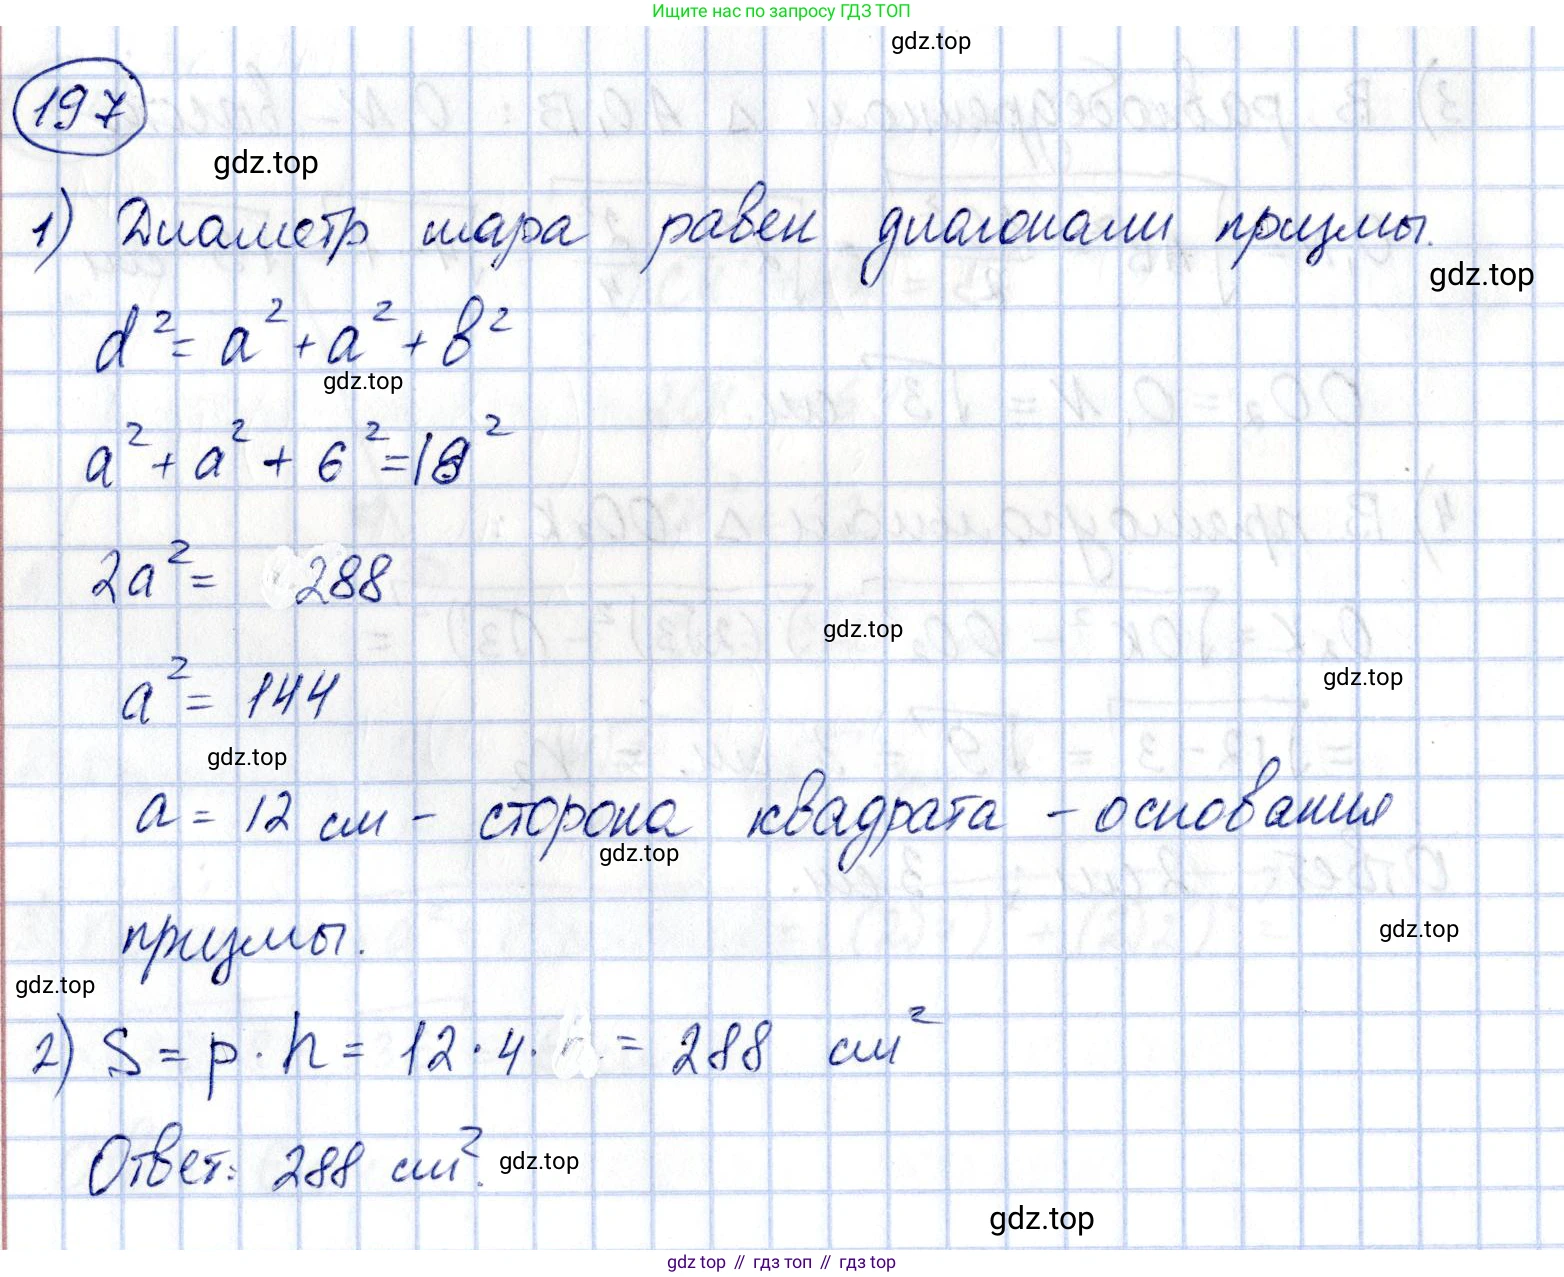 Ищите нас по запросу ГДЗ ТОП
gdz.top
197
gdz.top
1) Диаметр шара равен диагонали призмы.
gdz.top
d² = a² + a² + b²
gdz.top
a² + a² + 6² = 18²
2a² = 288
gdz.top
a² = 144
gdz.top
gdz.top
a = 12 см – сторона квадрата – основания
gdz.top
призмы.
gdz.top
gdz.top
2) S = p · h = 12 · 4 · = 288 см²
Ответ: 288 см².
gdz.top
gdz.top
gdz top // гдз топ // гдз top